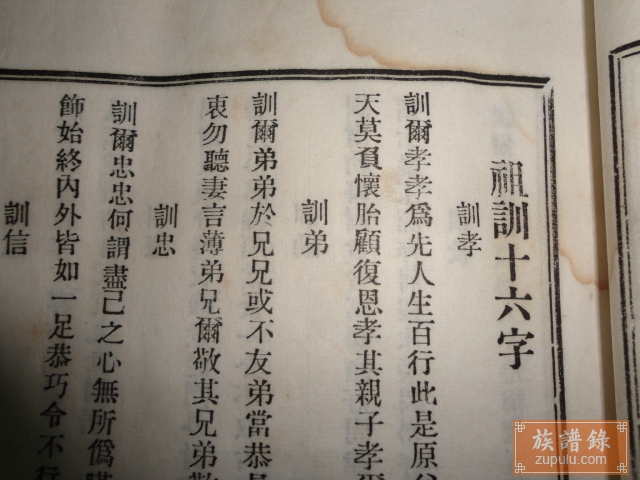 祖訓十六字
訓孝
訓爾孝孝爲先人生百行此是原
天莫負懷胎顧復恩孝其親子孝
訓弟
訓爾弟弟於兄兄或不友弟當恭
衷勿聽妻言薄弟兄爾敬其兄弟
訓忠
訓爾忠忠何謂盡己之心無所僞
飾始終內外皆如一足恭巧令不
訓信
族譜錄
zupulu.com